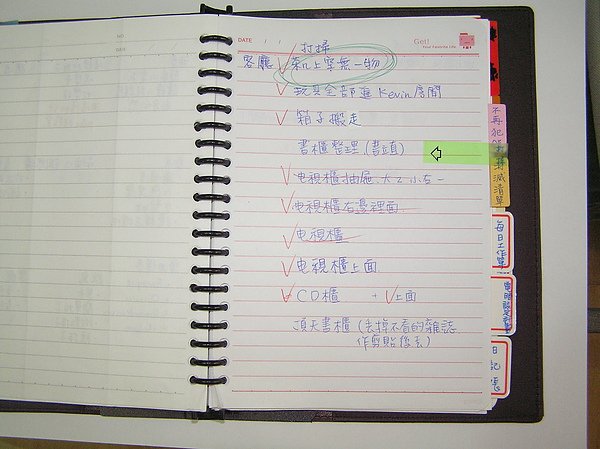 DATE
Get!
Your Favorite Life
打掃
客廳 ✓ 茶几上零無一物
✓ 玩具全部進Kevin房間
✓ 箱子搬走
書櫃整理(書頭)
✓ 电視櫃抽屜.大2小右一
✓ 电視櫃右邊裡面
✓ 电視櫃
✓ 电視櫃上面
✓ CD櫃 + ✓上面
頂天書櫃(丟掉不看的雜誌
作剪貼後丟)
不再犯
減清單
每日工作單
日記 帳